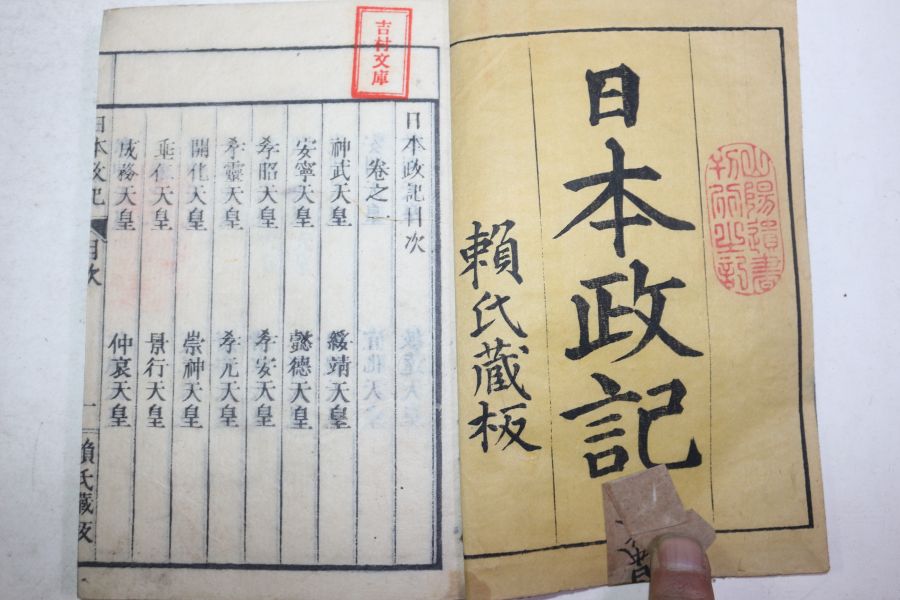 日本政記
賴氏蔵板
山陽遺書
吉村文庫
日本政記目次
卷之一
神武天皇 綏靖天皇
安寧天皇 懿德天皇
孝昭天皇 孝安天皇
孝靈天皇 孝元天皇
開化天皇 崇神天皇
垂仁天皇 景行天皇
成務天皇 仲哀天皇
日本政記 目次 一 賴氏藏板